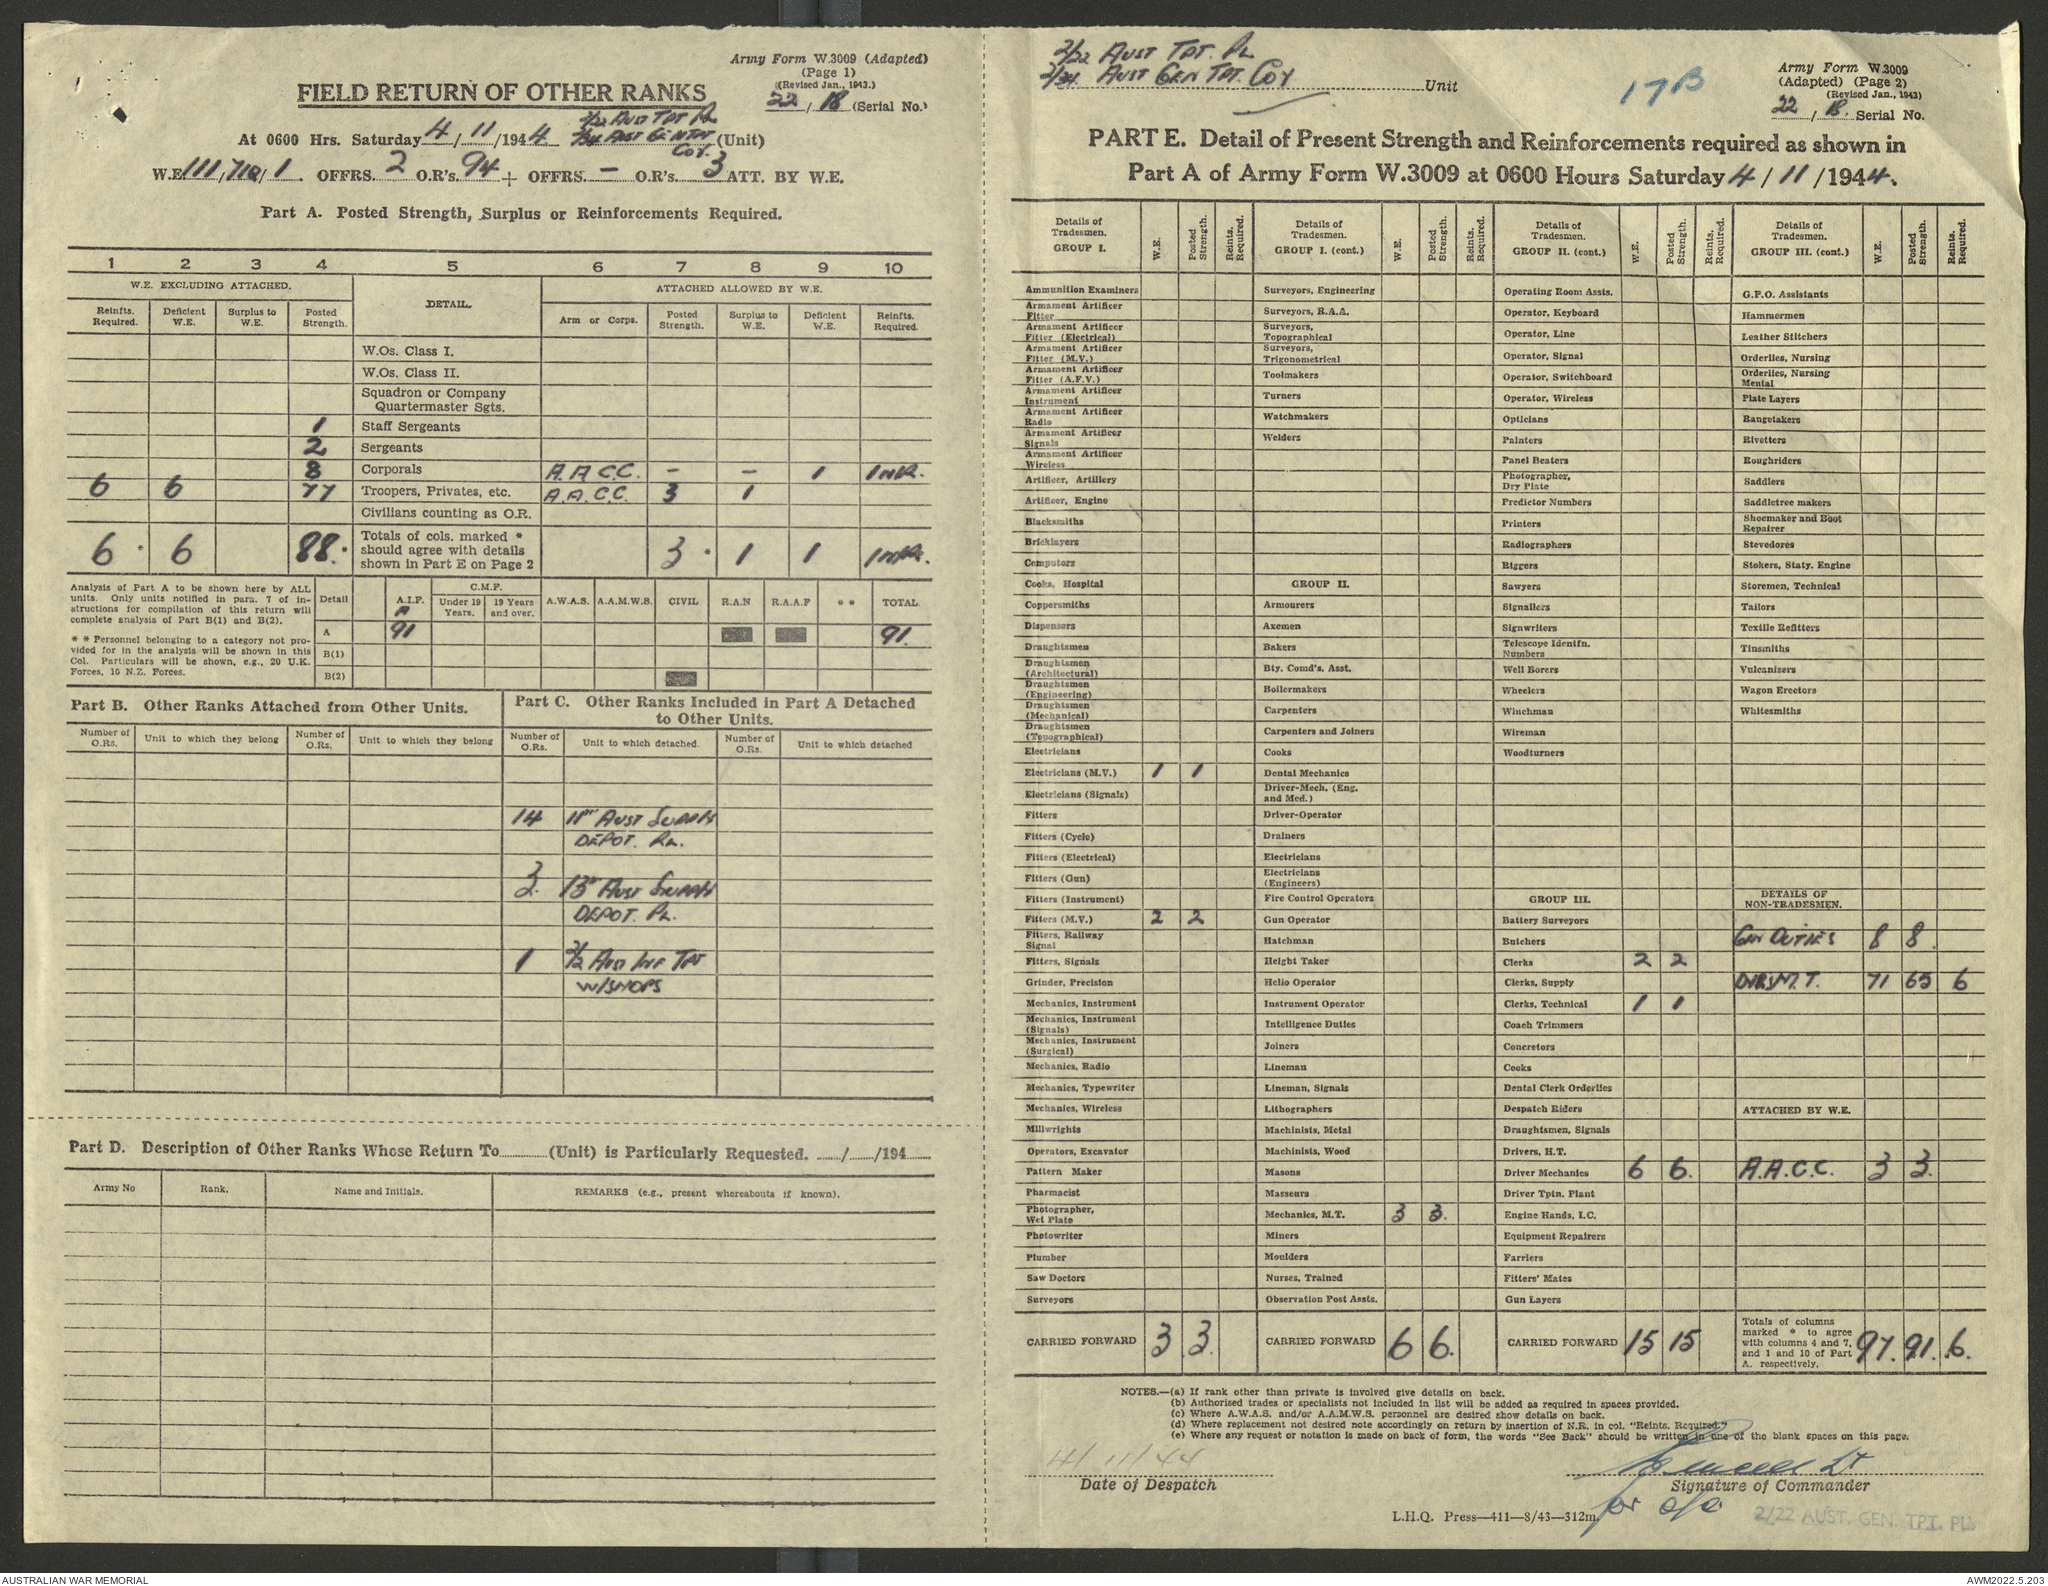 Army Form W.3009 (Adapted)
(Page 1)
(Revised Jan., 1943.)
22 / 18 (Serial No.)
FIELD RETURN OF OTHER RANKS
2/22 Aust Tpt Pl
At 0600 Hrs. Saturday 4/11/1944 2/34 Aust Gen Tpt Coy. (Unit)
W.E. 111/710/1. OFFRS. 2 O.R's. 94 + OFFRS. - O.R's. 3 ATT. BY W.E.
Part A. Posted Strength, Surplus or Reinforcements Required.
1 2 3 4 5 6 7 8 9 10
W.E. EXCLUDING ATTACHED. DETAIL. ATTACHED ALLOWED BY W.E.
Reinfts. Required. Deficient W.E. Surplus to W.E. Posted Strength. Arm or Corps. Posted Strength. Surplus to W.E. Deficient W.E. Reinfts. Required.
W.Os. Class I.
W.Os. Class II.
Squadron or Company
Quartermaster Sgts.
1 Staff Sergeants
2 Sergeants
8 Corporals A.A.C.C. - - 1 1 NR.
6 6 77 Troopers, Privates, etc. A.A.C.C. 3 1
Civilians counting as O.R.
6 * 6 88 * Totals of cols. marked * should agree with details shown in Part E on Page 2 3 * 1 1 1 NR.
Analysis of Part A to be shown here by ALL
units. Only units notified in para. 7 of in-
structions for compilation of this return will
complete analysis of Part B(1) and B(2).
* * Personnel belonging to a category not pro-
vided for in the analysis will be shown in this
Col. Particulars will be shown, e.g., 20 U.K.
Forces, 16 N.Z. Forces.
Detail A.I.F. C.M.F. Under 19 Years. 19 Years and over. A.W.A.S. A.A.M.W.S. CIVIL R.A.N R.A.A.F * * TOTAL
A 91 91.
B(1)
B(2)
Part B. Other Ranks Attached from Other Units.
Number of O.Rs. Unit to which they belong Number of O.Rs. Unit to which they belong
Part C. Other Ranks Included in Part A Detached
to Other Units.
Number of O.Rs. Unit to which detached. Number of O.Rs. Unit to which detached
14 11" Aust Supply
Depot. Pl.
3
2. 13" Aust Supply
Depot. Pl.
1 2/2 Aust Inf Tpt
W/Shops
Part D. Description of Other Ranks Whose Return To (Unit) is Particularly Requested. / /194
Army No Rank. Name and Initials. REMARKS (e.g., present whereabouts if known).
2/22 Aust Tpt. Pl
2/34 Aust Gen Tpt. Coy Unit
17B
Army Form W.3009
(Adapted) (Page 2)
(Revised Jan., 1943)
22 / 18. Serial No.
PART E. Detail of Present Strength and Reinforcements required as shown in
Part A of Army Form W.3009 at 0600 Hours Saturday 4/11/1944.
Details of Tradesmen. GROUP I. W.E. Posted Strength. Reints. Required.
Ammunition Examiners
Armament Artificer Fitter
Armament Artificer Fitter (Electrical)
Armament Artificer Fitter (M.V.)
Armament Artificer Fitter (A.F.V.)
Armament Artificer Instrument
Armament Artificer Radio
Armament Artificer Signals
Armament Artificer Wireless
Artificer, Artillery
Artificer, Engine
Blacksmiths
Bricklayers
Computors
Cooks, Hospital
Coppersmiths
Dispensers
Draughtsmen
Draughtsmen (Architectural)
Draughtsmen (Engineering)
Draughtsmen (Mechanical)
Draughtsmen (Topographical)
Electricians
Electricians (M.V.) 1 1
Electricians (Signals)
Fitters
Fitters (Cycle)
Fitters (Electrical)
Fitters (Gun)
Fitters (Instrument)
Fitters (M.V.) 2 2
Fitters, Railway Signal
Fitters, Signals
Grinder, Precision
Mechanics, Instrument
Mechanics, Instrument (Signals)
Mechanics, Instrument (Surgical)
Mechanics, Radio
Mechanics, Typewriter
Mechanics, Wireless
Millwrights
Operators, Excavator
Pattern Maker
Pharmacist
Photographer, Wet Plate
Photowriter
Plumber
Saw Doctors
Surveyors
CARRIED FORWARD 3 3.
Details of Tradesmen. GROUP I. (cont.) W.E. Posted Strength. Reints. Required.
Surveyors, Engineering
Surveyors, R.A.A.
Surveyors, Topographical
Surveyors, Trigonometrical
Toolmakers
Turners
Watchmakers
Welders
GROUP II.
Armourers
Axemen
Bakers
Bty. Comd's. Asst.
Boilermakers
Carpenters
Carpenters and Joiners
Cooks
Dental Mechanics
Driver-Mech. (Eng. and Med.)
Driver-Operator
Drainers
Electricians
Electricians (Engineers)
Fire Control Operators
Gun Operator
Hatchman
Height Taker
Helio Operator
Instrument Operator
Intelligence Duties
Joiners
Lineman
Lineman, Signals
Lithographers
Machinists, Metal
Machinists, Wood
Masons
Masseurs
Mechanics, M.T. 3 3.
Miners
Moulders
Nurses, Trained
Observation Post Assts.
CARRIED FORWARD 6 6.
Details of Tradesmen. GROUP II. (cont.) W.E. Posted Strength. Reints. Required.
Operating Room Assts.
Operator, Keyboard
Operator, Line
Operator, Signal
Operator, Switchboard
Operator, Wireless
Opticians
Painters
Panel Beaters
Photographer, Dry Plate
Predictor Numbers
Printers
Radiographers
Riggers
Sawyers
Signallers
Signwriters
Telescope Identfn. Numbers
Well Borers
Wheelers
Winchman
Wireman
Woodturners
GROUP III.
Battery Surveyors
Butchers
Clerks 2 2
Clerks, Supply
Clerks, Technical 1 1
Coach Trimmers
Concretors
Cooks
Dental Clerk Orderlies
Despatch Riders
Draughtsmen, Signals
Drivers, H.T.
Driver Mechanics 6 6.
Driver Tptn. Plant
Engine Hands, I.C.
Equipment Repairers
Farriers
Fitters' Mates
Gun Layers
CARRIED FORWARD 15 15
Details of Tradesmen. GROUP III. (cont.) W.E. Posted Strength. Reints. Required.
G.P.O. Assistants
Hammermen
Leather Stitchers
Orderlies, Nursing
Orderlies, Nursing Mental
Plate Layers
Rangetakers
Rivetters
Roughriders
Saddlers
Saddletree makers
Shoemaker and Boot Repairer
Stevedores
Stokers, Staty. Engine
Storemen, Technical
Tailors
Textile Refitters
Tinsmiths
Vulcanizers
Wagon Erectors
Whitesmiths
DETAILS OF NON-TRADESMEN.
Gen Duties 8 8.
Dvrs M.T. 71 65 6
ATTACHED BY W.E.
A.A.C.C. 3 3.
Totals of columns marked * to agree with columns 4 and 7, and 1 and 10 of Part A. respectively. 97. 91. 6.
NOTES.—(a) If rank other than private is involved give details on back.
(b) Authorised trades or specialists not included in list will be added as required in spaces provided.
(c) Where A.W.A.S. and/or A.A.M.W.S. personnel are desired show details on back.
(d) Where replacement not desired note accordingly on return by insertion of N.R. in col. "Reints. Required."
(e) Where any request or notation is made on back of form, the words "See Back" should be written in one of the blank spaces on this page.
4/11/44
Date of Despatch
Lt
Signature of Commander
for o/c
L.H.Q. Press—411—8/43—312m.
2/22 AUST. GEN. TPT. PL.
AUSTRALIAN WAR MEMORIAL
AWM2022.5.203